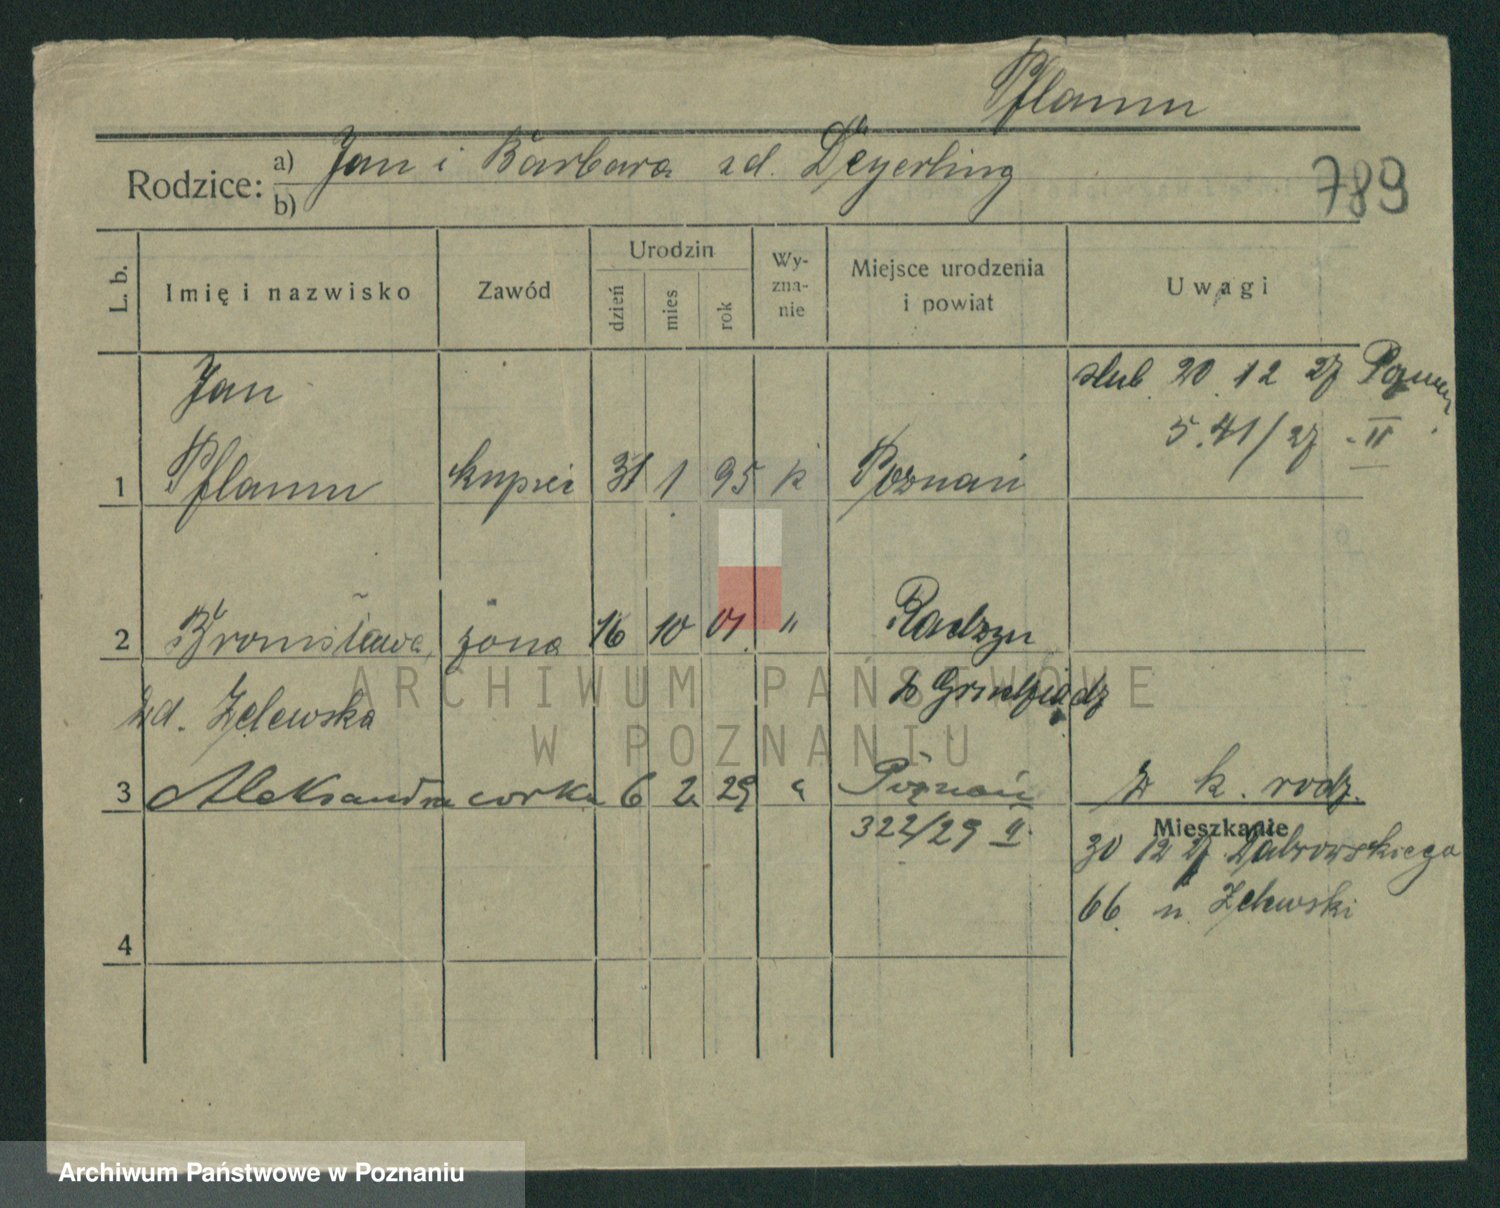 Pflaum
Rodzice: a) Jan i Barbara zd. Deyerling
b)
789
L. b. Imię i nazwisko Zawód Urodzin dzień mies rok Wy-zna-nie Miejsce urodzenia i powiat Uwagi
Jan
ślub 20 12 27 Poznań
5.41/27 - II
1 Pflaum kupiec 31 1 95 k Poznań
2 Bronisława, żona 16 10 01 " Radzyn
zd. Żelewska p Grudziądz
3 Aleksandra córka 6 2 29 " Poznań z k. rodz.
322/29 II
Mieszkanie
30 12 27 Dąbrowskiego
66. u. Żelewski
4
ARCHIWUM PAŃSTWOWE
W POZNANIU
Archiwum Państwowe w Poznaniu